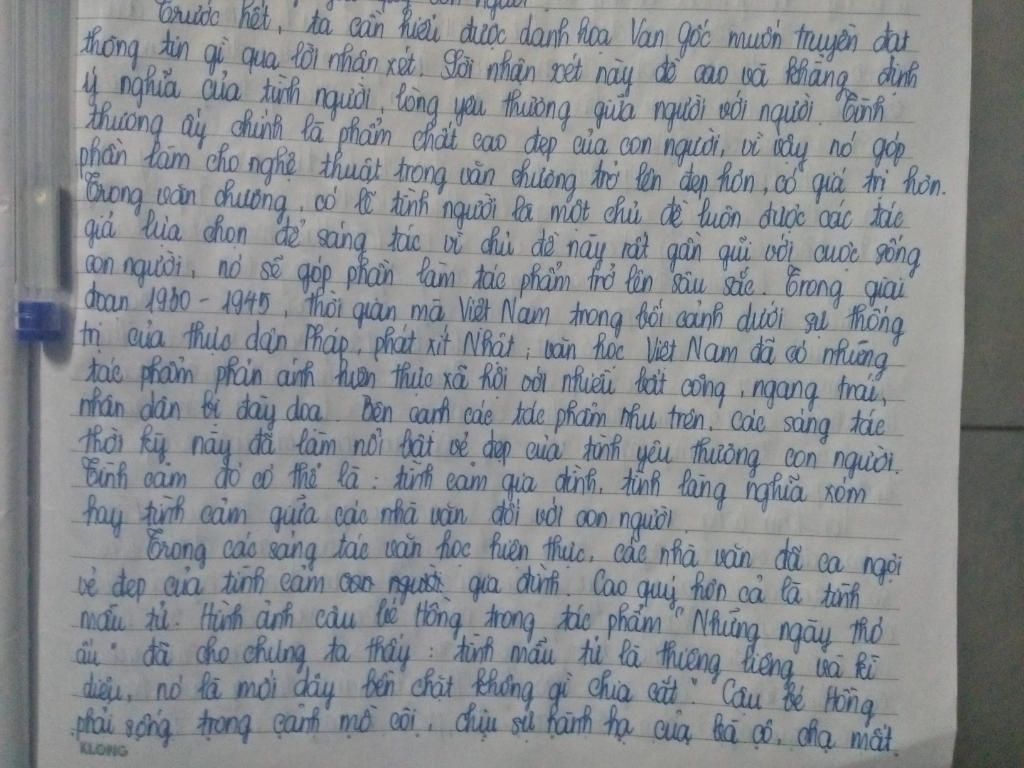 con người.
Trước hết, ta cần hiểu được danh họa Van gốc muốn truyền đạt
thông tin gì qua lời nhận xét. Lời nhận xét này đề cao và khẳng định
ý nghĩa của tình người, lòng yêu thương giữa người với người. Tình
thương ấy chính là phẩm chất cao đẹp của con người, vì vậy nó góp
phần làm cho nghệ thuật trong văn chương trở lên đẹp hơn, có giá trị hơn.
Trong văn chương, có lẽ tình người là một chủ đề luôn được các tác
giả lựa chọn để sáng tác vì chủ đề này rất gần gũi với cuộc sống
con người, nó sẽ góp phần làm tác phẩm trở lên sâu sắc. Trong giai
đoạn 1930 - 1945, thời gian mà Việt Nam trong bối cảnh dưới sự thống
trị của thực dân Pháp, phát xít Nhật, văn học Việt Nam đã có những
tác phẩm phản ánh hiện thực xã hội với nhiều bất công, ngang trái,
nhân dân bị đày đọa. Bên cạnh các tác phẩm như trên, các sáng tác
thời kỳ này đã làm nổi bật vẻ đẹp của tình yêu thương con người.
Tình cảm đó có thể là: tình cảm gia đình, tình làng nghĩa xóm
hay tình cảm giữa các nhà văn đối với con người.
Trong các sáng tác văn học hiện thực, các nhà văn đã ca ngợi
vẻ đẹp của tình cảm con người gia đình. Cao quý hơn cả là tình
mẫu tử. Hình ảnh cậu bé Hồng trong tác phẩm "Những ngày thơ
ấu" đã cho chúng ta thấy: tình mẫu tử là thiêng liêng và kì
diệu, nó là mối dây bền chặt không gì chia cắt." Cậu bé Hồng
phải sống trong cảnh mồ côi, chịu sự hành hạ của bà cô, cha mất.
KLONG